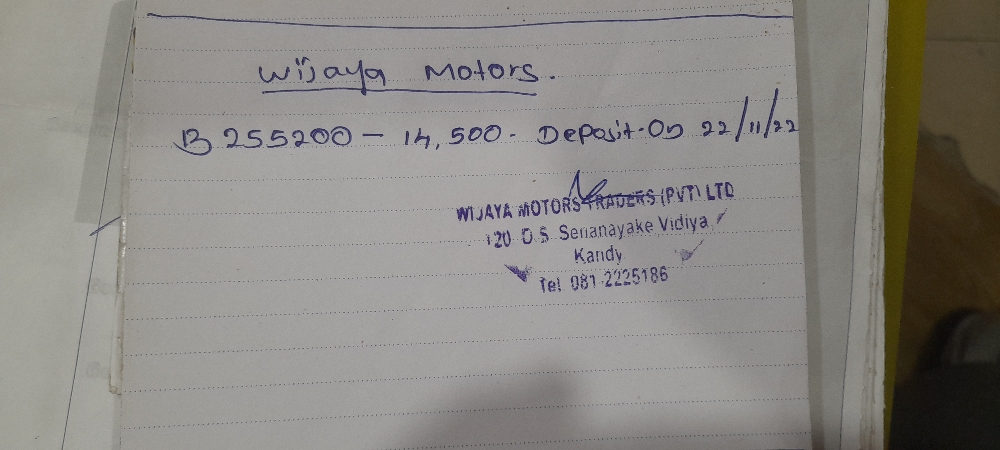 Wijaya Motors.
B 255200 - 14,500- Deposit-On 22/11/22
WIJAYA MOTORS TRADERS (PVT) LTD
120 D.S. Senanayake Vidiya
Kandy
Tel 081-2225186